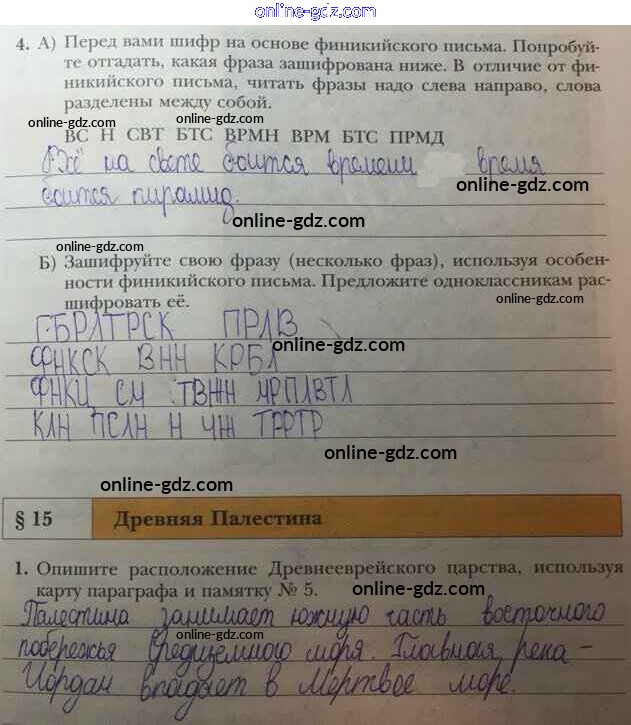 online-gdz.com
4. А) Перед вами шифр на основе финикийского письма. Попробуй-
те отгадать, какая фраза зашифрована ниже. В отличие от фи-
никийского письма, читать фразы надо слева направо, слова
разделены между собой.
online-gdz.com online-gdz.com online-gdz.com
ВС Н СВТ БТС ВРМН ВРМ БТС ПРМД
Всё на свете боится времени время
online-gdz.com
боится пирамид.
online-gdz.com
online-gdz.com
Б) Зашифруйте свою фразу (несколько фраз), используя особен-
ности финикийского письма. Предложите одноклассникам рас-
шифровать её.
online-gdz.com
ГБРЛТРСК ПРЛВ
online-gdz.com
ФНКСК ВНН КРБЛ
ФНКЦ СМ ТВЖН МРПЛВТЛ
КЛН ПСЛН Н ЧЖ ТРРТР
online-gdz.com
online-gdz.com
§ 15 Древняя Палестина
online-gdz.com
1. Опишите расположение Древнееврейского царства, используя
карту параграфа и памятку № 5.
Палестина занимает южную часть восточного
online-gdz.com
побережья Средиземного моря. Главная река –
Иордан впадает в Мертвое море.
online-gdz.com